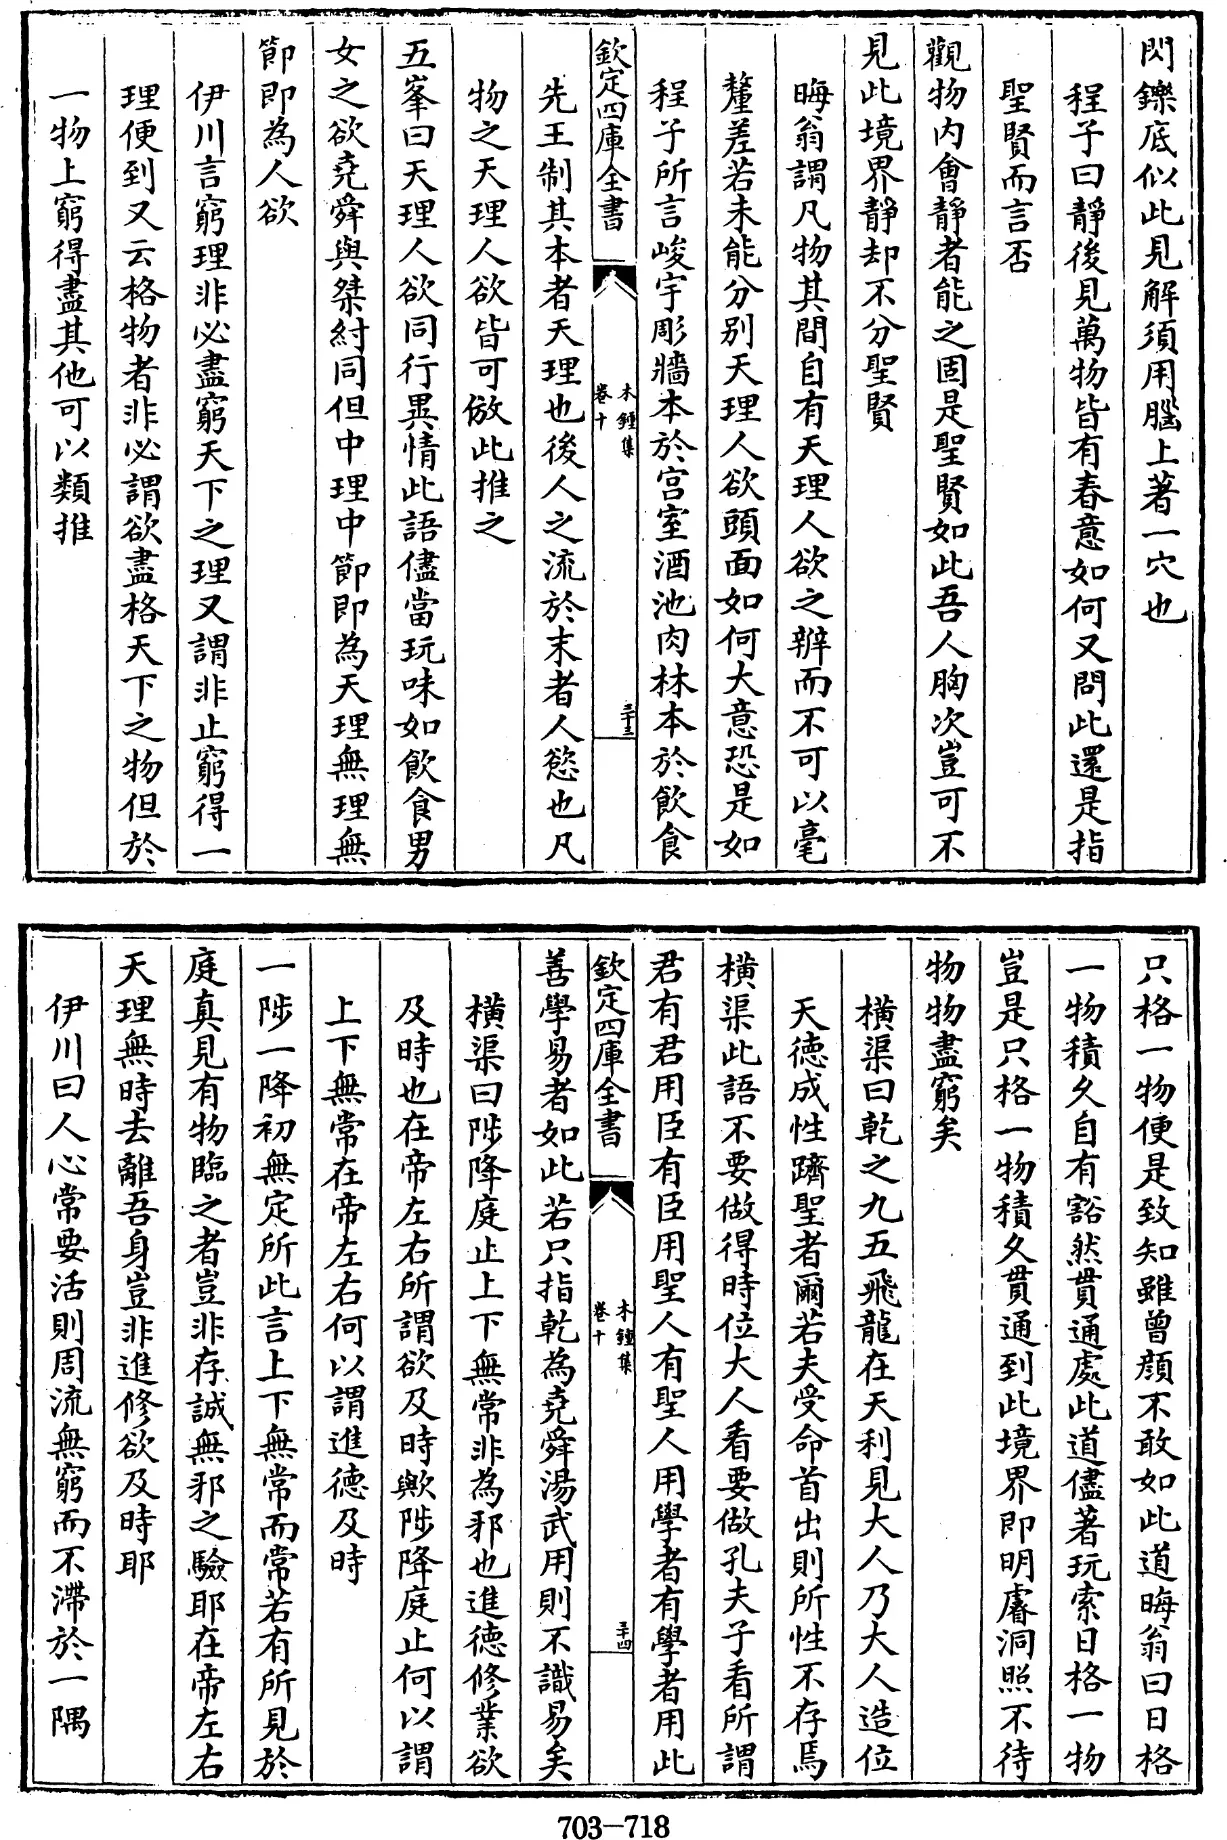 閃鑠底似此見解須用腦上著一穴也
程子曰靜後見萬物皆有春意如何又問此還是指
聖賢而言否
觀物內會靜者能之固是聖賢如此吾人胸次豈可不
見此境界靜却不分聖賢
晦翁謂凡物其間自有天理人欲之辨而不可以毫
釐差若未能分別天理人欲頭面如何大意恐是如
程子所言峻宇彫牆本於宫室酒池肉林本於飲食
欽定四庫全書
木鍾集
卷十
三十三
先王制其本者天理也後人之流於末者人慾也凡
物之天理人欲皆可倣此推之
五峯曰天理人欲同行異情此語儘當玩味如飲食男
女之欲堯舜與桀紂同但中理中節即為天理無理無
節即為人欲
伊川言窮理非必盡窮天下之理又謂非止窮得一
理便到又云格物者非必謂欲盡格天下之物但於
一物上窮得盡其他可以類推
只格一物便是致知雖曾顏不敢如此道晦翁曰日格
一物積久自有豁然貫通處此道儘著玩索日格一物
豈是只格一物積久貫通到此境界即明睿洞照不待
物物盡窮矣
橫渠曰乾之九五飛龍在天利見大人乃大人造位
天德成性躋聖者爾若夫受命首出則所性不存焉
橫渠此語不要做得時位大人看要做孔夫子看所謂
君有君用臣有臣用聖人有聖人用學者有學者用此
欽定四庫全書
木鍾集
卷十
三十四
善學易者如此若只指乾為堯舜湯武用則不識易矣
橫渠曰陟降庭止上下無常非為邪也進德修業欲
及時也在帝左右所謂欲及時歟陟降庭止何以謂
上下無常在帝左右何以謂進德及時
一陟一降初無定所此言上下無常而常若有所見於
庭真見有物臨之者豈非存誠無邪之驗耶在帝左右
天理無時去離吾身豈非進修欲及時耶
伊川曰人心常要活則周流無窮而不滯於一隅
703-718